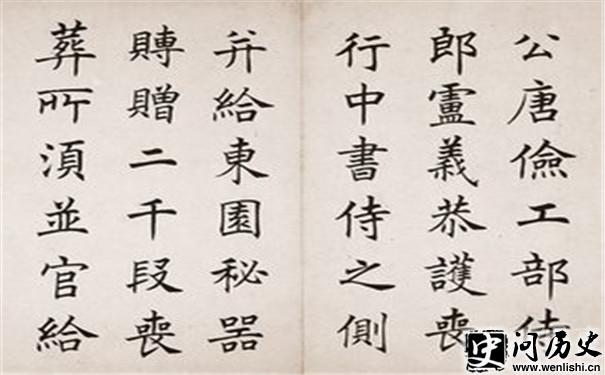 公唐儉工部侍
郎盧義恭護喪
行中書侍之側
并給東園秘器
賻贈二千段喪
葬所湏並官給
史 问历史
www.wenlishi.cn